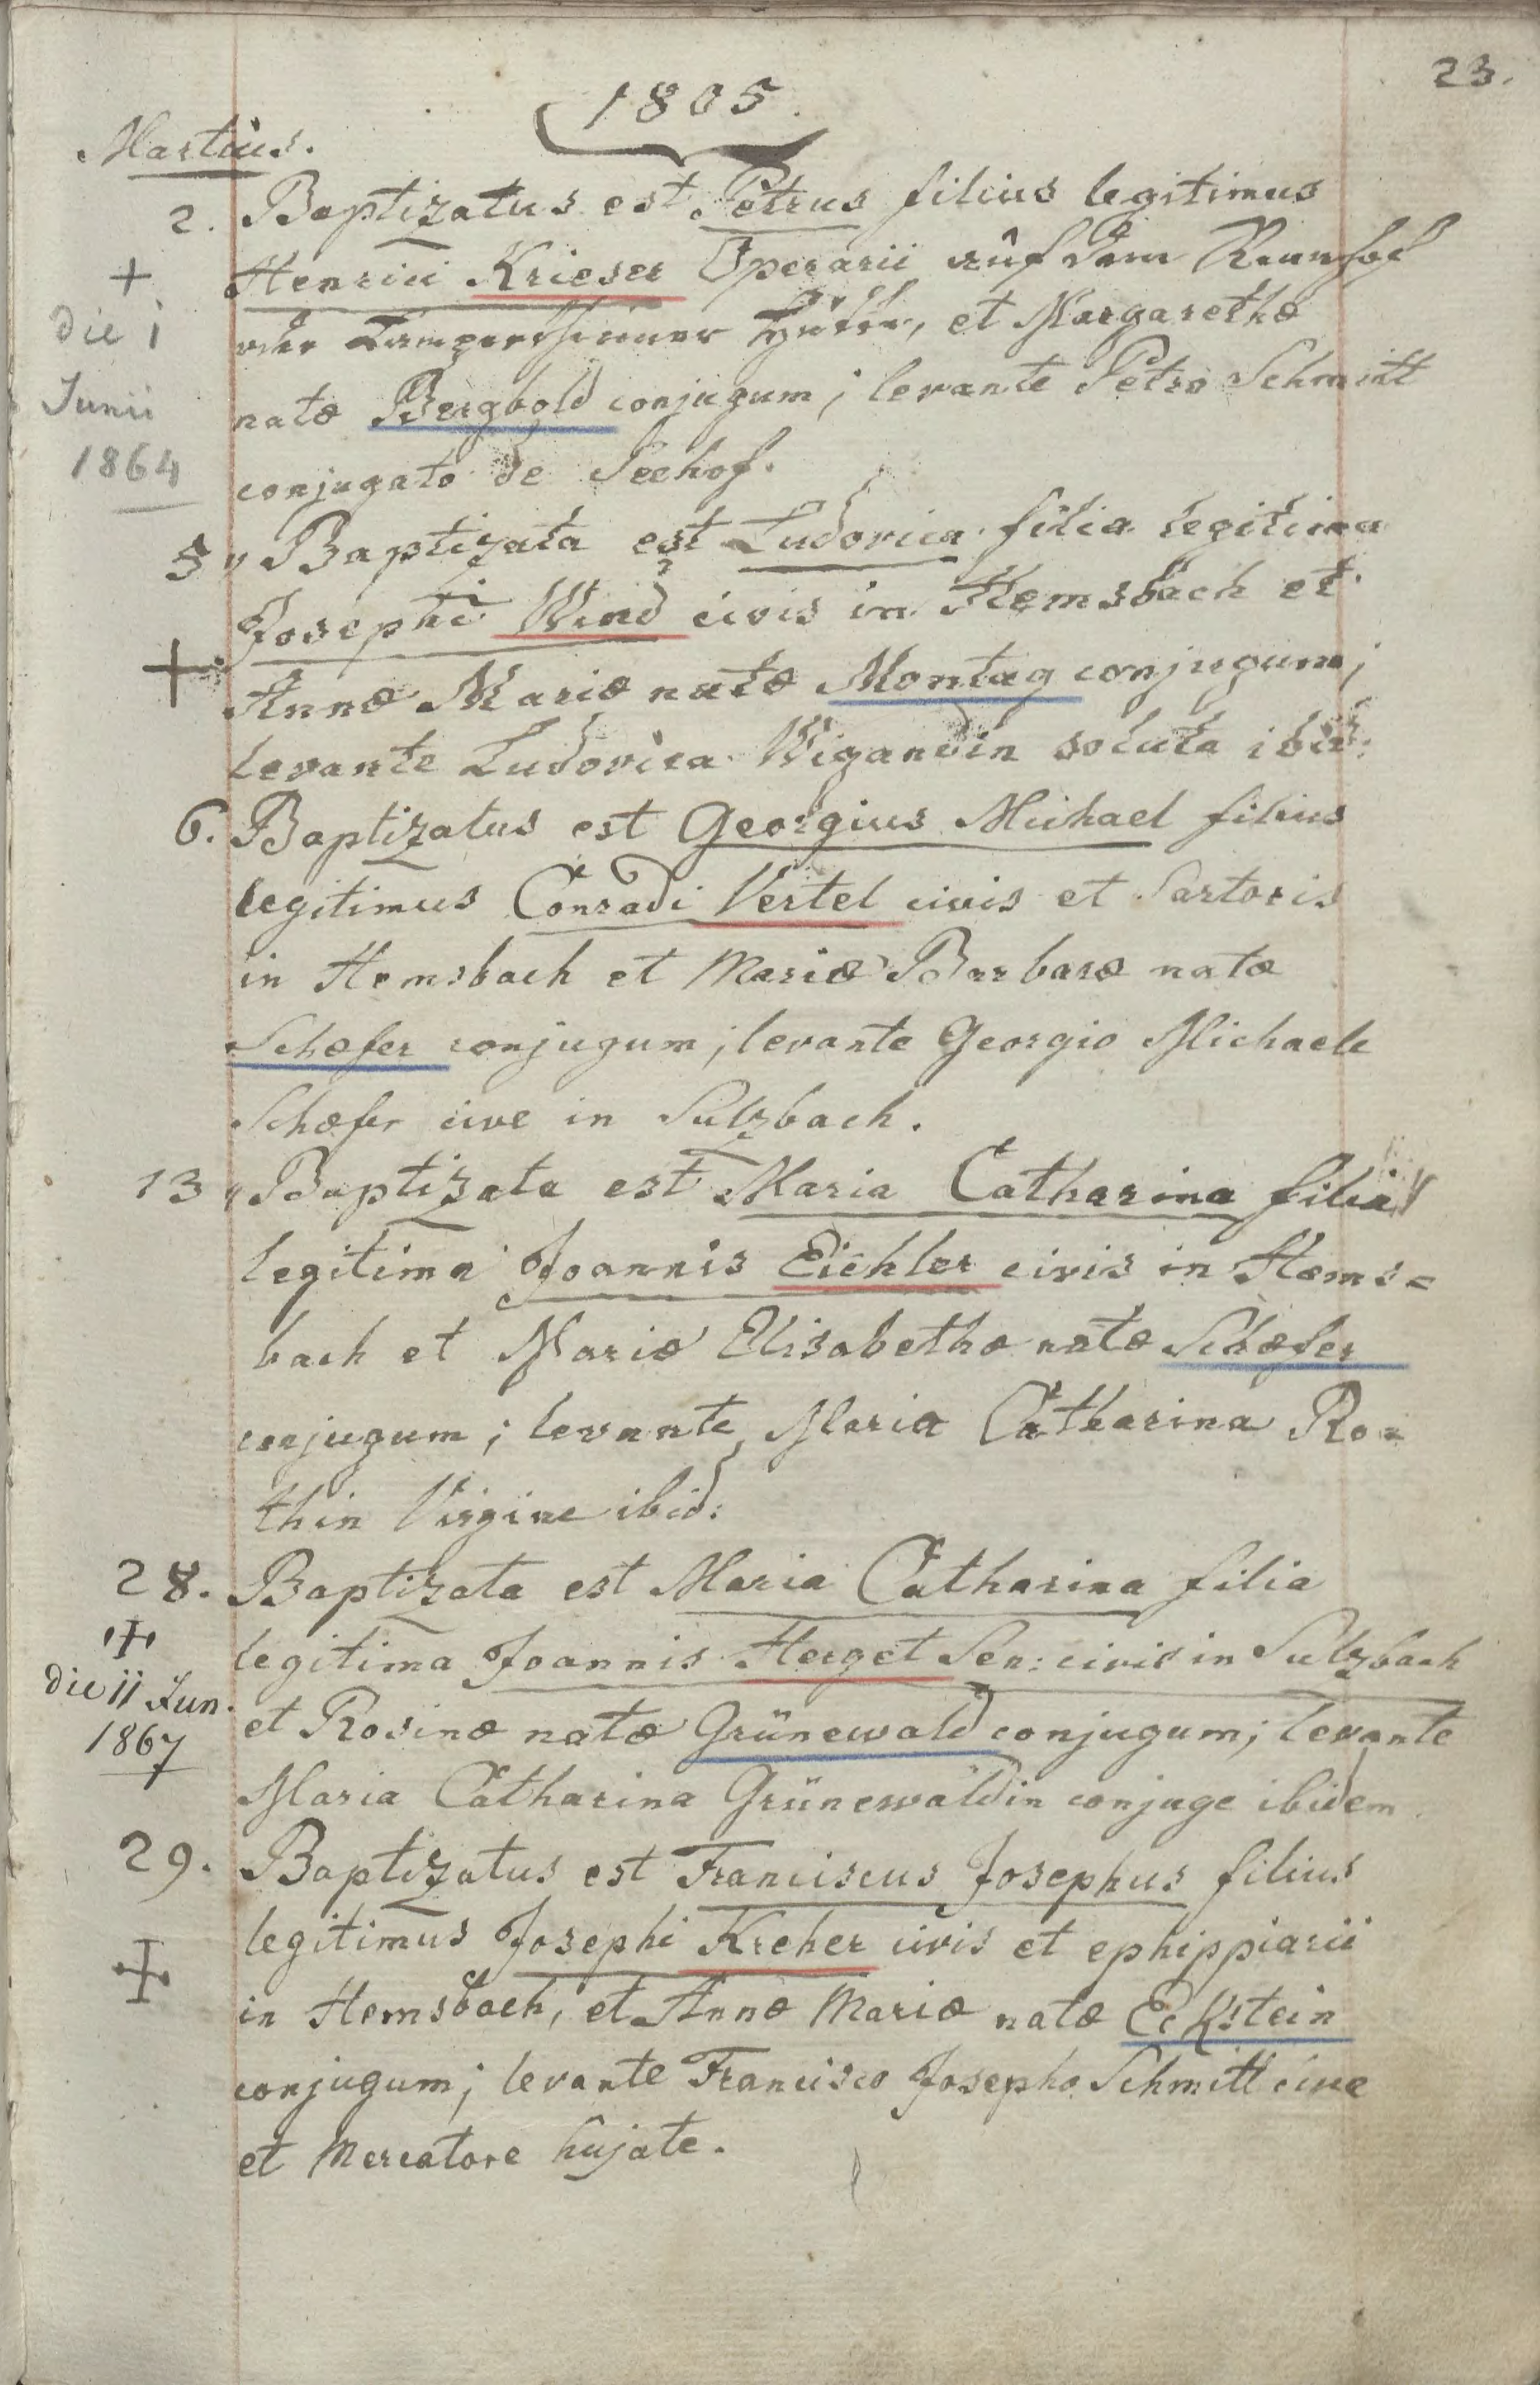 23.
1805.
Martius.
2. Baptizatus est Petrus filius legitimus
Henrici Krieser Operarii auf dem
oder Lampertheimer Hütte, et Margarethæ
natæ Bergbold conjugum; levante Petro Schmitt
conjugato de Seehof.
+
die i
Junii
1864
5 " Baptizata est Ludovica filia legitima
Josephi Wend civis in Hemsbach et
+
Annæ Mariæ natæ Montag conjugum;
levante Ludovica Wigandin soluta ibid:
6. Baptizatus est Georgius Michael filius
legitimus Conradi Vertel civis et Sartoris
in Hemsbach et Mariæ Barbaræ natæ
Schæfer conjugum; levante Georgio Michaele
Schæfer cive in Sulzbach.
13 " Baptizata est Maria Catharina filia
legitima Joannis Eichler civis in Hems=
bach et Mariæ Elisabethæ natæ Schæfer
conjugum; levante Maria Catharina Ro=
thin Virgine ibid:
28. Baptizata est Maria Catharina filia
legitima Joannis Herget Sen: civis in Sulzbach
et Rosinæ natæ Grünewald conjugum; levante
Maria Catharina Grünewaldin conjuge ibidem
+
die ii Jun.
1867
29. Baptizatus est Franciscus Josephus filius
legitimus Josephi Kreher civis et ephippiarii
in Hemsbach, et Annæ Mariæ natæ Eckstein
conjugum; levante Francisco Josepho Schmitt cive
et Mercatore hujate.
+